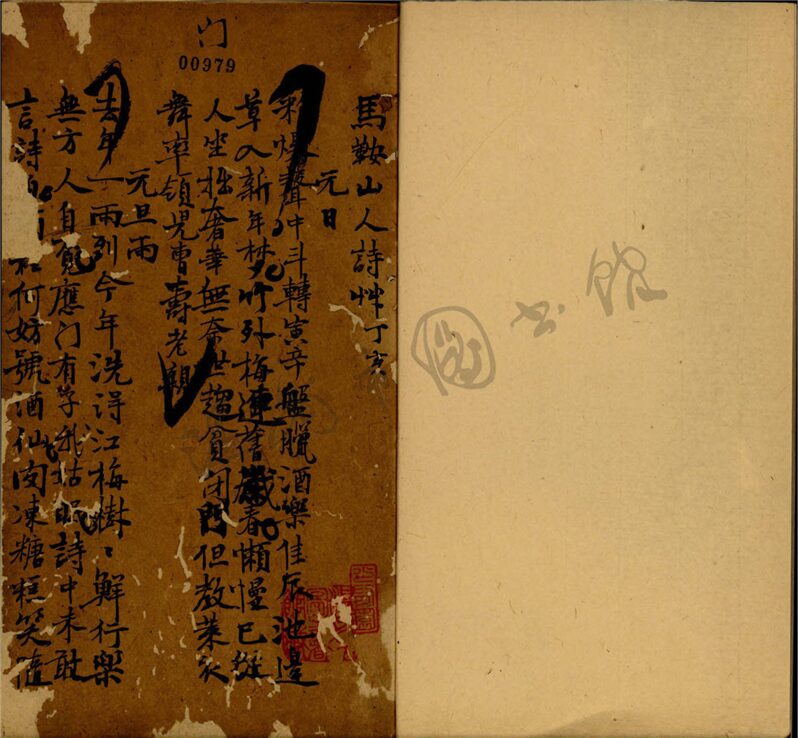 门
00979
馬鞍山人詩艸丁亥
元日
彩爆聲中斗轉寅辛盤臘酒樂佳辰池邊
草入新年夢竹外梅連舊歲春懶慢已從
人坐拙奢華無奈世趨貧闭門但教萊衣
舞率領児曹壽老親
元旦雨
去年一雨到今年洗得江梅樹〻鮮行樂
無方人自寬應门有子我姑眠詩中未敢
言詩 何妨號酒仙 凍糖糕笑